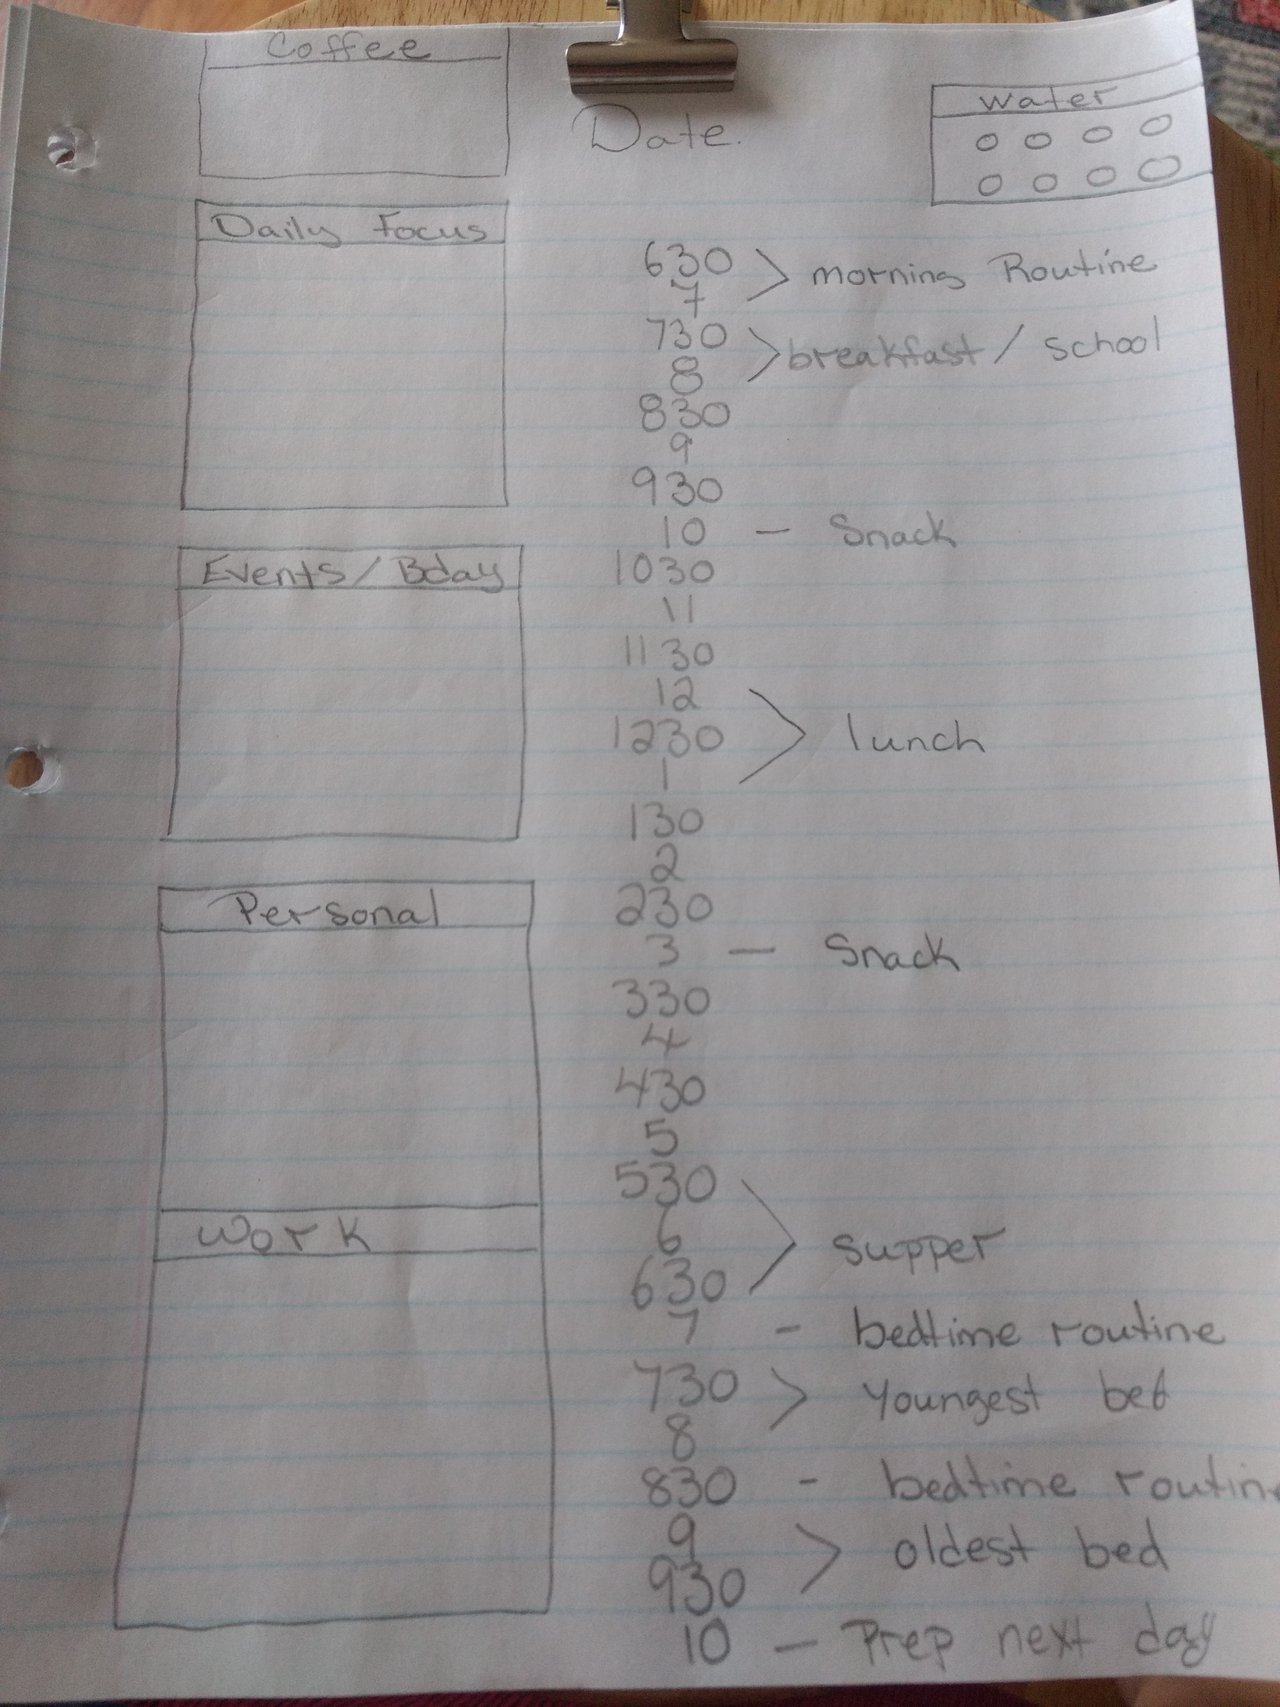 Coffee
Date.
water
Daily Focus
Events/Bday
Personal
Work
630
7
morning Routine
730
8
breakfast/school
830
9
930
10 - Snack
1030
11
1130
12
1230
1
lunch
130
2
230
3 - Snack
330
4
430
5
530
6
630
supper
7 - bedtime routine
730
8
Youngest bed
830 - bedtime routin
9
930
oldest bed
10 - Prep next day